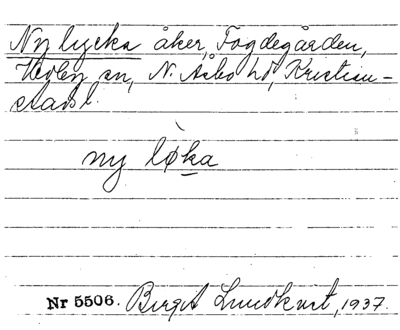 Nylycka åker, Fogdegården,
Vedby sn, N. Åsbo hd, Kristian-
stads l.
ny løka
Nr 5506. Birgit Lundkvist, 1937.